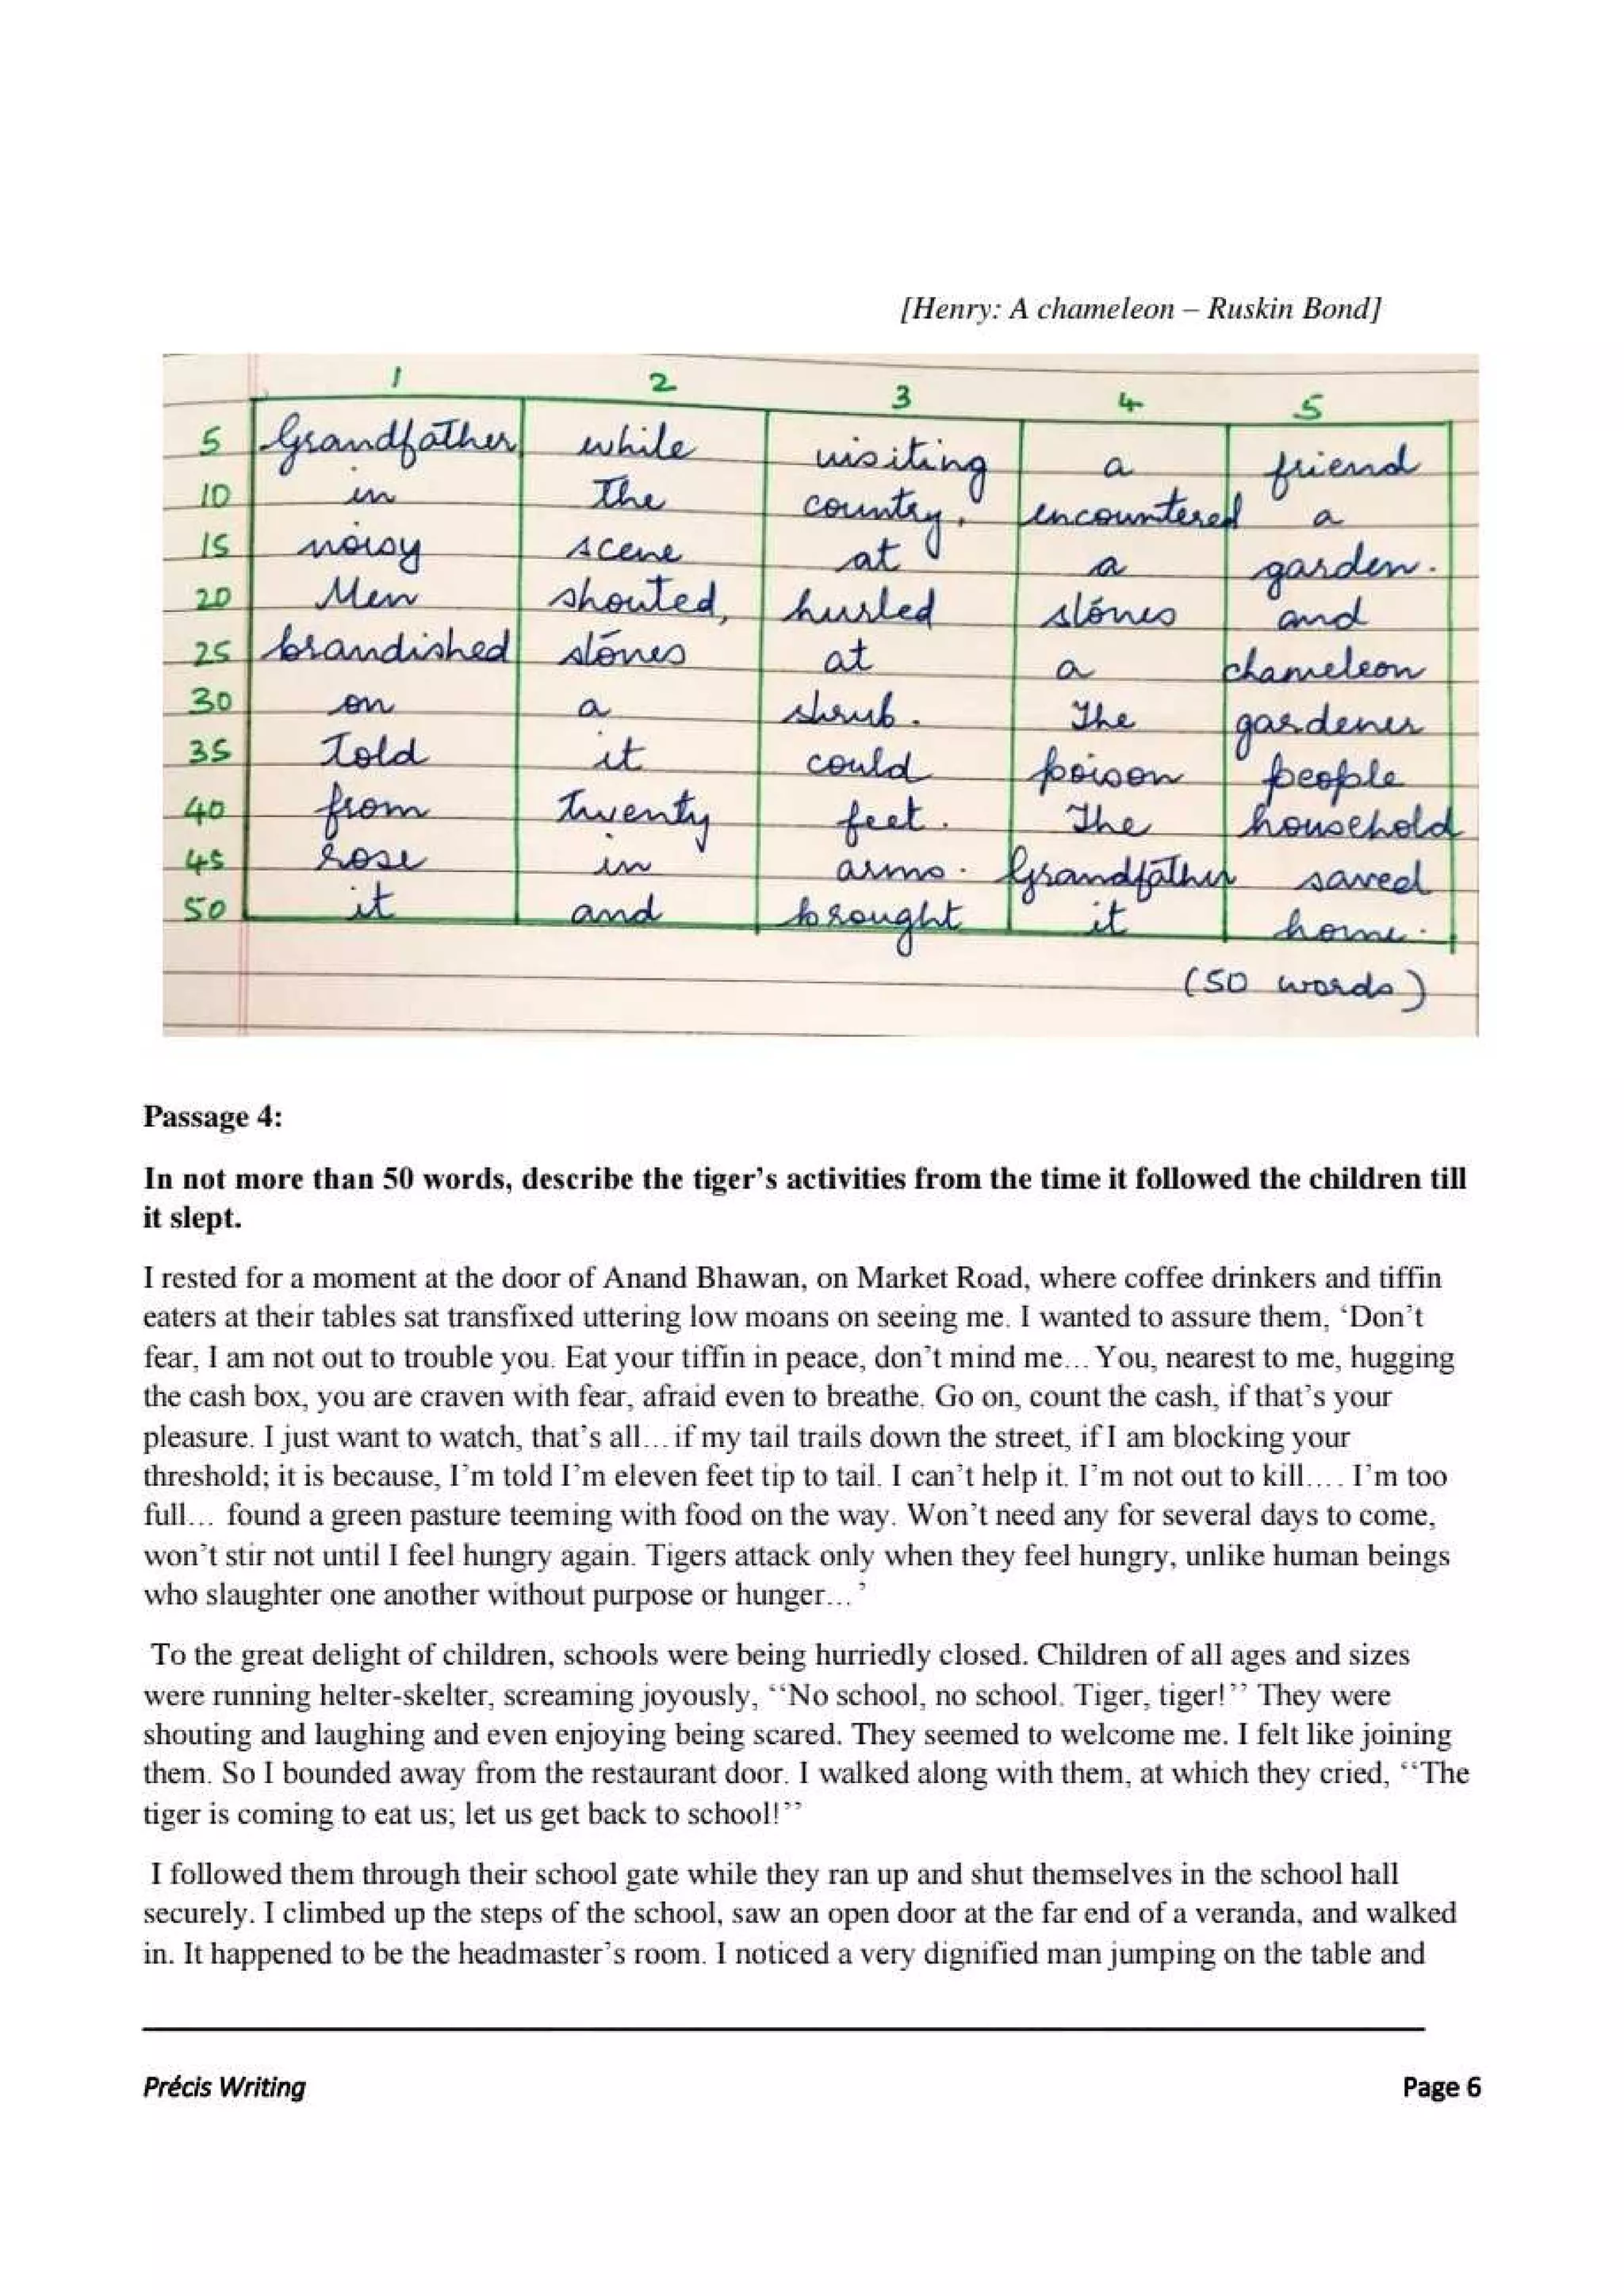 [Henry: A chameleon – Ruskin Bond]
1 2 3 4 5
5 Grandfather while visiting a friend
10 in the country, encountered a
15 noisy scene at a garden.
20 Men shouted, hurled stones and
25 brandished stones at a chameleon
30 on a shrub. The gardener
35 told it could poison people
40 from twenty feet. The household
45 rose in arms. Grandfather saved
50 it and brought it home.
(50 words)
Passage 4:
In not more than 50 words, describe the tiger’s activities from the time it followed the children till
it slept.
I rested for a moment at the door of Anand Bhawan, on Market Road, where coffee drinkers and tiffin
eaters at their tables sat transfixed uttering low moans on seeing me. I wanted to assure them, ‘Don’t
fear, I am not out to trouble you. Eat your tiffin in peace, don’t mind me... You, nearest to me, hugging
the cash box, you are craven with fear, afraid even to breathe. Go on, count the cash, if that’s your
pleasure. I just want to watch, that’s all... if my tail trails down the street, if I am blocking your
threshold; it is because, I’m told I’m eleven feet tip to tail. I can’t help it. I’m not out to kill.... I’m too
full... found a green pasture teeming with food on the way. Won’t need any for several days to come,
won’t stir not until I feel hungry again. Tigers attack only when they feel hungry, unlike human beings
who slaughter one another without purpose or hunger...’
To the great delight of children, schools were being hurriedly closed. Children of all ages and sizes
were running helter-skelter, screaming joyously, ‘‘No school, no school. Tiger, tiger!’’ They were
shouting and laughing and even enjoying being scared. They seemed to welcome me. I felt like joining
them. So I bounded away from the restaurant door. I walked along with them, at which they cried, ‘‘The
tiger is coming to eat us; let us get back to school!’’
I followed them through their school gate while they ran up and shut themselves in the school hall
securely. I climbed up the steps of the school, saw an open door at the far end of a veranda, and walked
in. It happened to be the headmaster’s room. I noticed a very dignified man jumping on the table and
Précis Writing Page 6